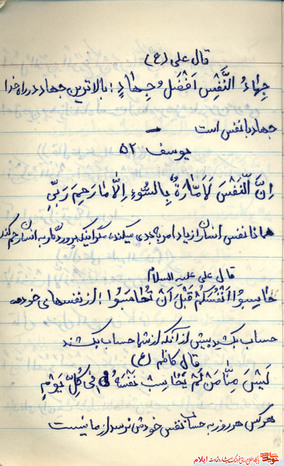 قال علی (ع)
جِهادُ النَّفْسِ اَفْضَلُ جِهادٍ : بالاترین جهاد در راه خدا
جهاد با نفس است
یوسف ۵۲
اِنَّ النَّفْسَ لَاَمّارَةٌ بِالسُّوءِ اِلّا ما رَحِمَ رَبّی
همانا نفس انسان را زیاد امر به بدی میکند، مگر اینکه پروردگار به انسان رحم کند
قال علی علیه السلام
حاسِبوُا اَنْفُسَکُمْ قَبْلَ اَنْ تُحاسَبوُا : از نفسهای خود
حساب بکشید پیش از آنکه از شما حساب بکشند
قال کاظم (ع)
لَیْسَ مِنّا مَنْ لَمْ یُحاسِبْ نَفْسَهُ فی کُلِّ یَوْمٍ
هر کس هر روز به حساب نفس خودش نرسد از ما نیست